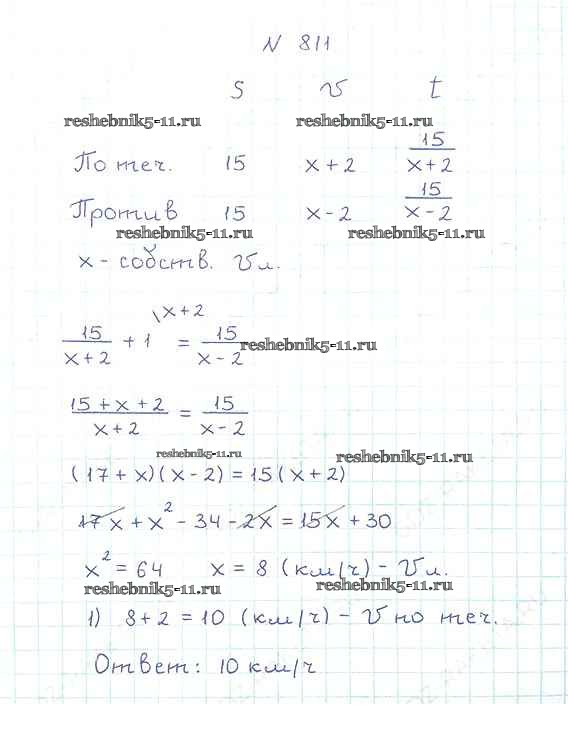 N 811
S V t
reshebnik5-11.ru reshebnik5-11.ru
По теч. 15 x+2 15/(x+2)
Против 15 x-2 15/(x-2)
reshebnik5-11.ru reshebnik5-11.ru
x - собств. Vл.
15/(x+2) + 1 \x+2 = 15/(x-2) reshebnik5-11.ru
(15+x+2)/(x+2) = 15/(x-2)
reshebnik5-11.ru reshebnik5-11.ru
(17+x)(x-2)=15(x+2)
17x + x² - 34 - 2x = 15x + 30
x² = 64 x = 8 (км/ч) - Vл.
reshebnik5-11.ru reshebnik5-11.ru
1) 8+2 = 10 (км/ч) - V по теч.
Ответ: 10 км/ч